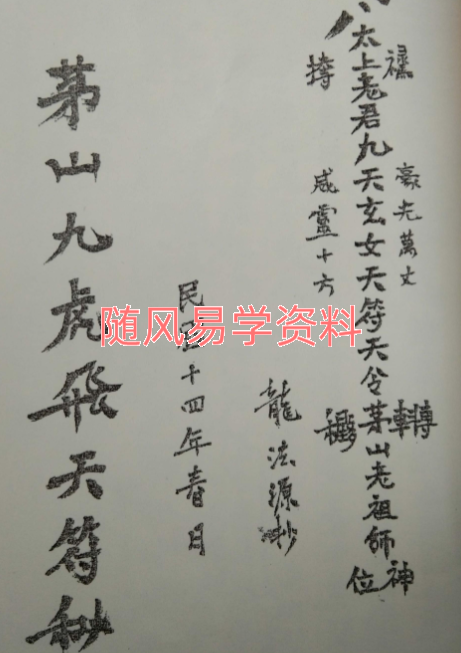 豪光萬丈
轉
神
太上老君九天玄女天符天令茅山老祖師
威靈十方
位
龍法源抄
民國十四年春日
茅山九虎飛天符秘
随风易学资料